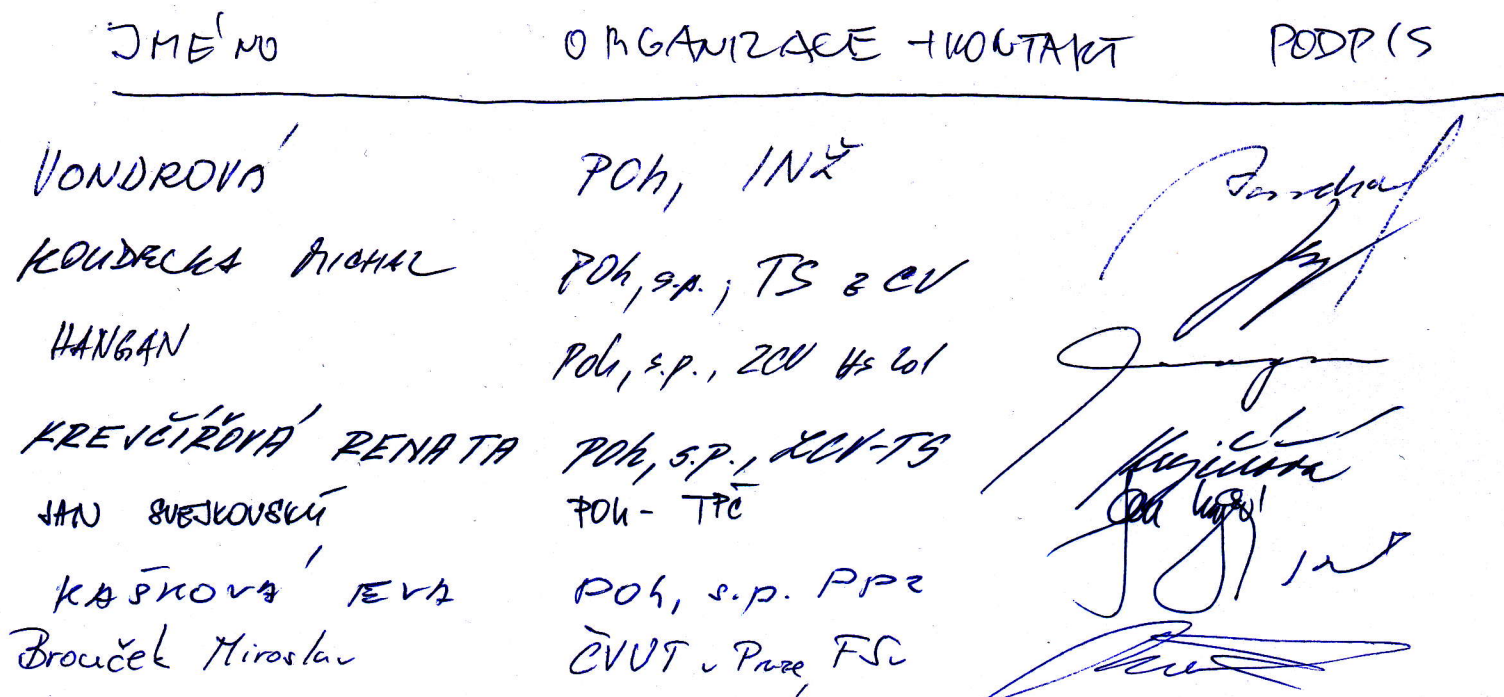 JMÉNO ORGANIZACE + KONTAKT PODPIS
VONDROVÁ POh, INŽ
KOUDECKA MICHAL POh, s.p., TS ZCV
HANGAN POh, s.p., ZCV HS 201
KREJČÍŘOVÁ RENATA POh, s.p., ZCV-TS
JAN SVEJKOVSKÝ POh - TPČ
KAŠKOVÁ EVA POh, s.p. PPZ
Brouček Miroslav ČVUT v Praze, FSv